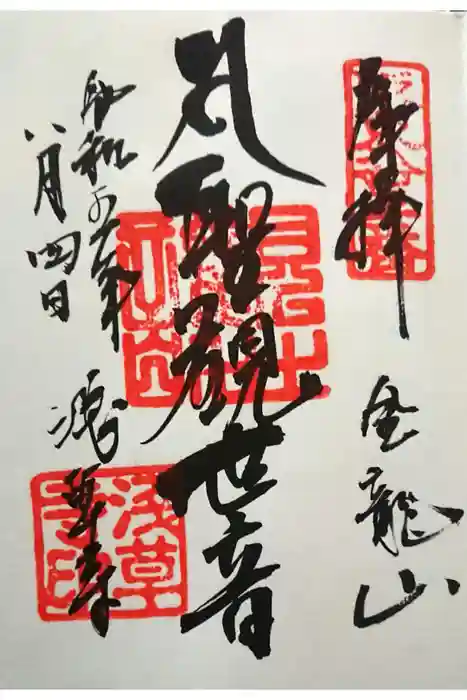 奉拝
金龍山
聖観世音
令和六年
八月四日
浅草寺
浅草寺印